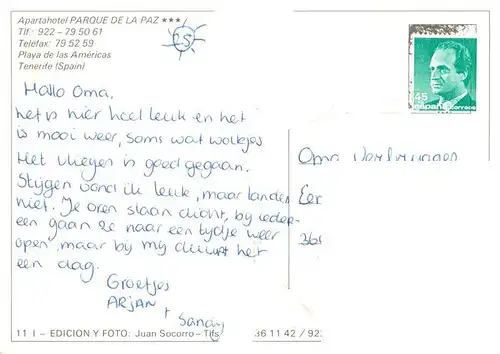 Apartahotel PARQUE DE LA PAZ ★★★
Tlf.: 922 – 79 50 61
Telefax: 79 52 59
Playa de las Américas
Tenerife (Spain)
25
Hallo Oma,
het is hier heel leuk en het
is mooi weer, soms wat wolkjes
Het vliegen is goed gegaan.
Stijgen vond ik leuk, maar landen
niet. Je oren slaan dicht, by ieder-
een gaan ze naar een tydje weer
open, maar by my duurt het
een dag.
Groetjes
ARJAN
+
Sandy
45
España correos
Oma
Eer
36
11 I – EDICION Y FOTO: Juan Socorro – Tlfs
36 11 42 / 922